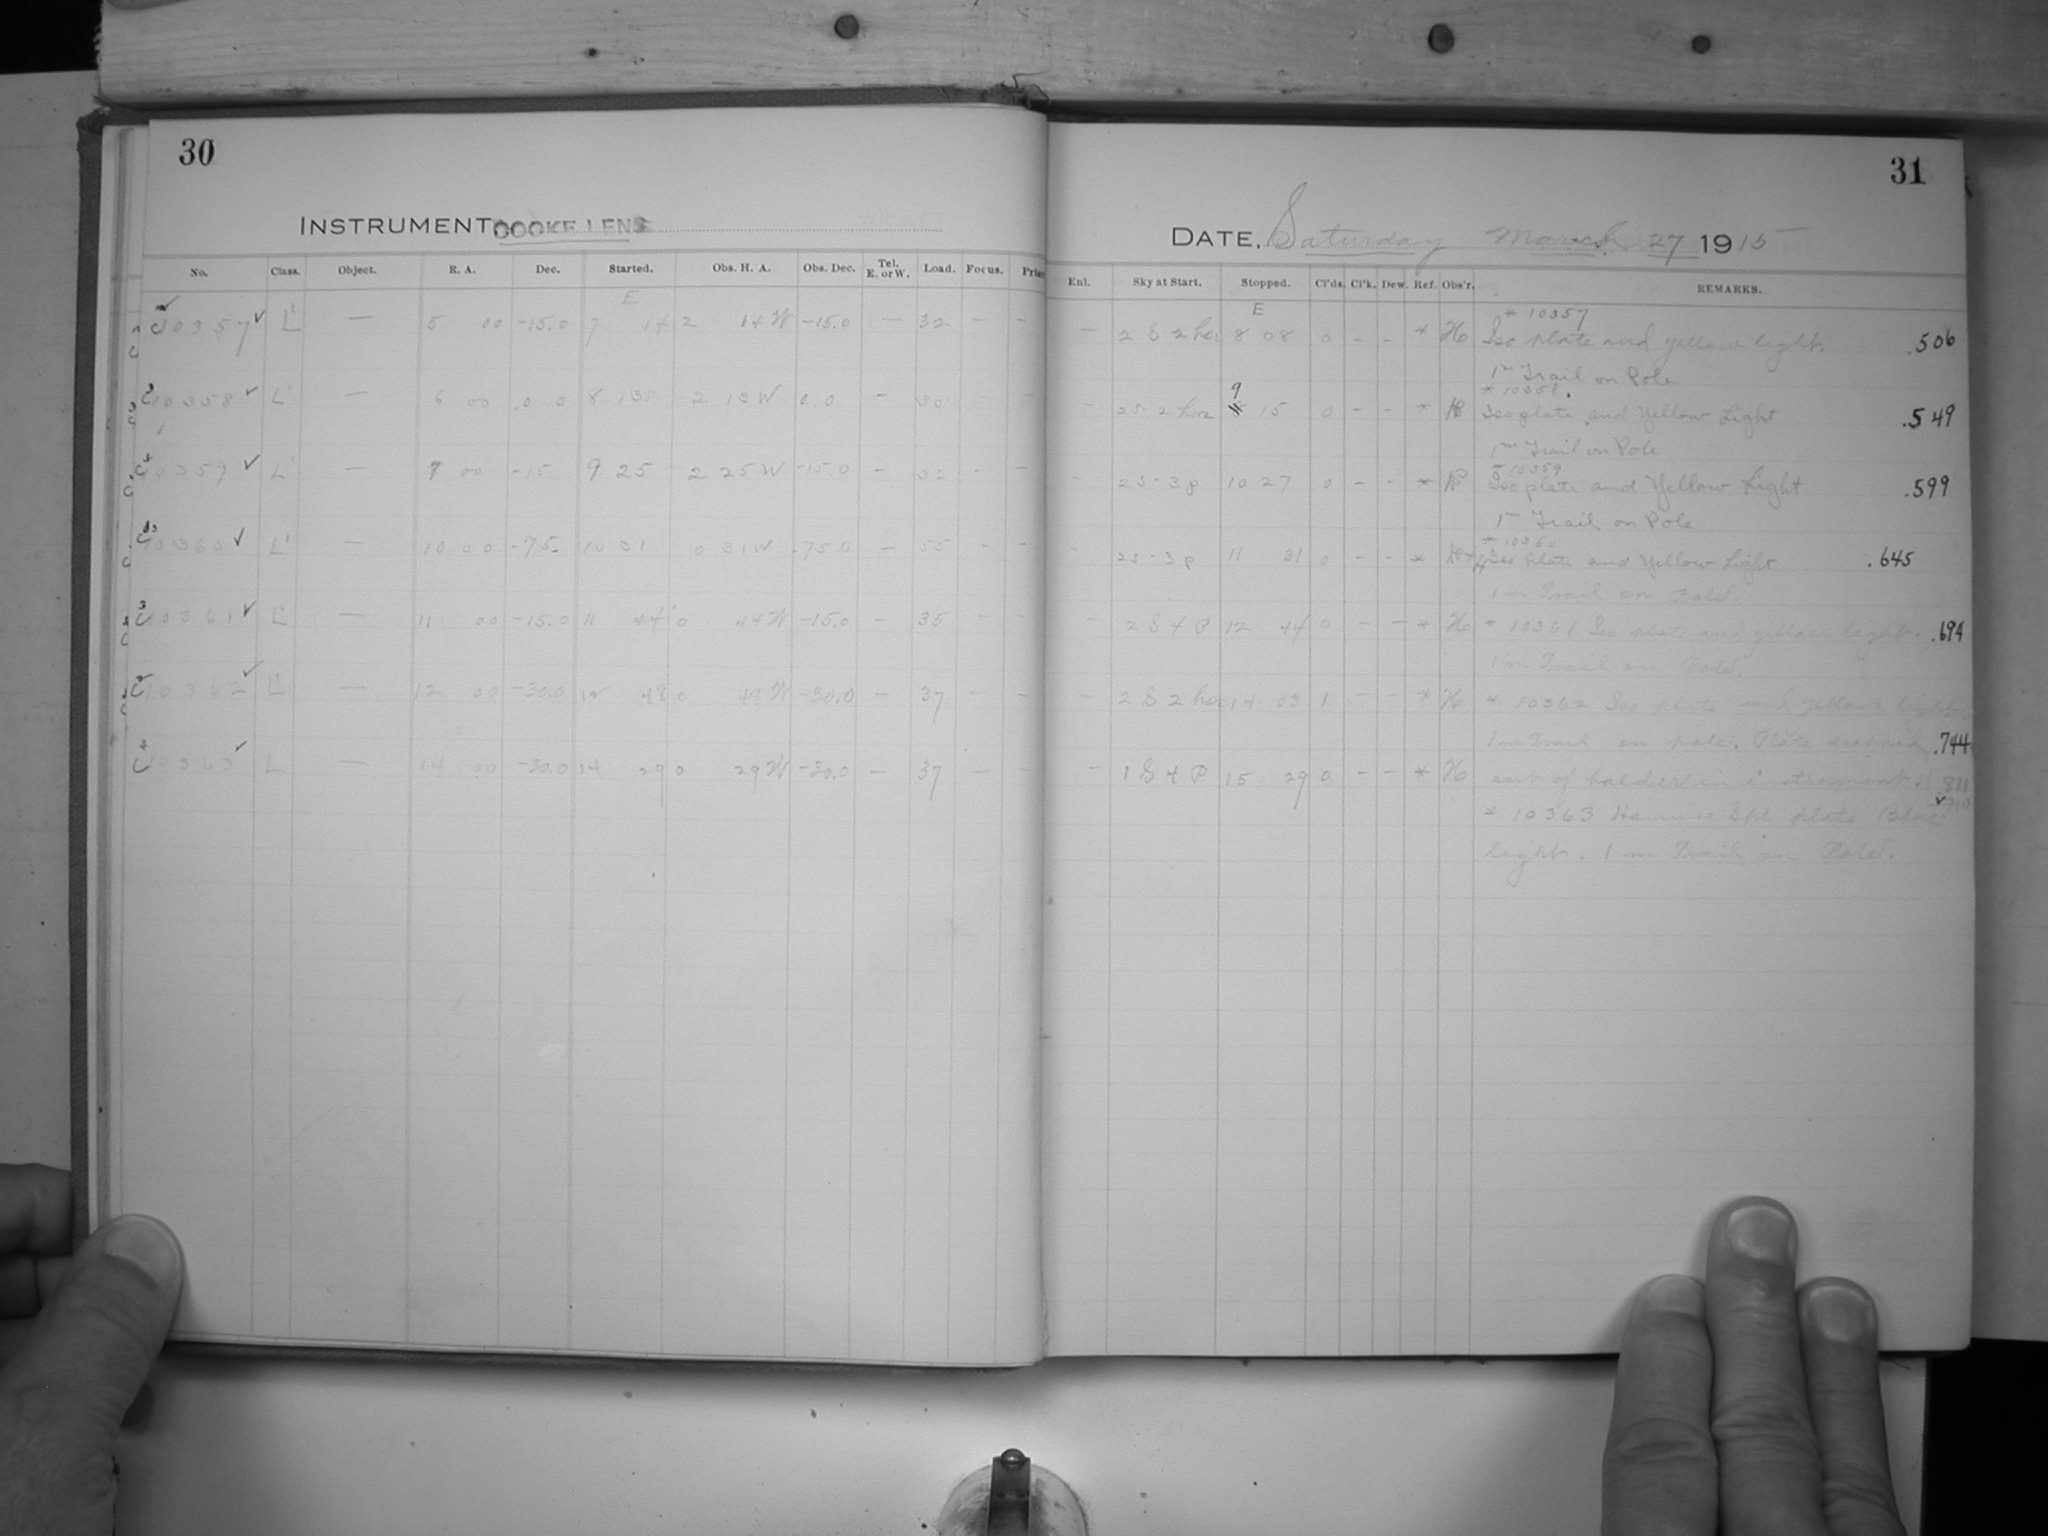 30
INSTRUMENT COOKE LENS
No. Class. Object. R. A. Dec. Started. Obs. H. A. Obs. Dec. Tel. E. or W. Load. Focus.
E
10357 ✓ L' — 5 00 -15.0 7 14 2 14 W -15.0 — 32 - -
10358 ✓ L' — 6 00 0 0 8 13 2 13 W 0.0 - 30 - -
10359 ✓ L' — 7 00 -15 9 25 2 25 W -15.0 - 32 - -
10360 ✓ L' — 10 00 -75. 10 31 0 31 W -75.0 - 55 - -
10361 ✓ L' — 11 00 -15.0 11 44 0 44 W -15.0 - 35 - -
10362 ✓ L' — 12 00 -30.0 12 48 0 48 W -30.0 - 37 - -
10363 ✓ L — 14 00 -30.0 14 29 0 29 W -30.0 — 37 - -
31
DATE, Saturday March 27 1915
Enl. Sky at Start. Stopped. Cl'ds. Cl'k. Dew. Ref. Obs'r. REMARKS.
E * 10357
— 2 S 2 hor 8 08 0 - - * H Iso plate and yellow light. .506
1m Trail on Pole
* 10358.
- 2S-2 hor 9 15 0 - - * Iso plate and Yellow Light .549
1m Trail on Pole
* 10359
- 2S-3p 10 27 0 - - * Iso plate and Yellow Light .599
1m Trail on Pole
* 10360
- 2S-3p 11 31 0 - - * Iso Plate and Yellow Light .645
1m Trail on Pole.
- 2 S 4 P 12 44 0 - - * H * 10361 Iso plate and yellow light. .694
1m Trail on Pole.
- 2 S 2 hor 14 03 1 - - * H * 10362 Iso plate and yellow light.
1m Trail on pole. Plate dropped .744
— 1 S 4 P 15 29 0 - - * H out of holder in instrument. .811
* 10363 Hammer Spl plate Blue
light. 1 m Trail on Pole.